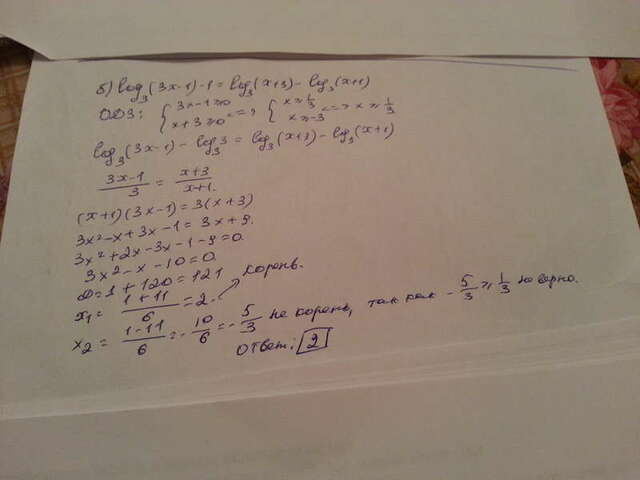 б) log₃(3x-1)-1 = log₃(x+3) - log₃(x+1)
ОДЗ: { 3x-1≥0 x+3≥0 <=>, { x≥1/3 x≥-3 <=> x≥1/3
log₃(3x-1) - log₃3 = log₃(x+3) - log₃(x+1)
(3x-1)/3 = (x+3)/(x+1).
(x+1)(3x-1) = 3(x+3)
3x²-x+3x-1 = 3x+9.
3x²+2x-3x-1-9=0.
3x²-x-10=0.
D=1+120=121
x₁ = (1+11)/6 = 2. ↗ корень.
x₂ = (1-11)/6 = -10/6 = -5/3 не корень, так как -5/3 ≥ 1/3 не верно.
Ответ: 2